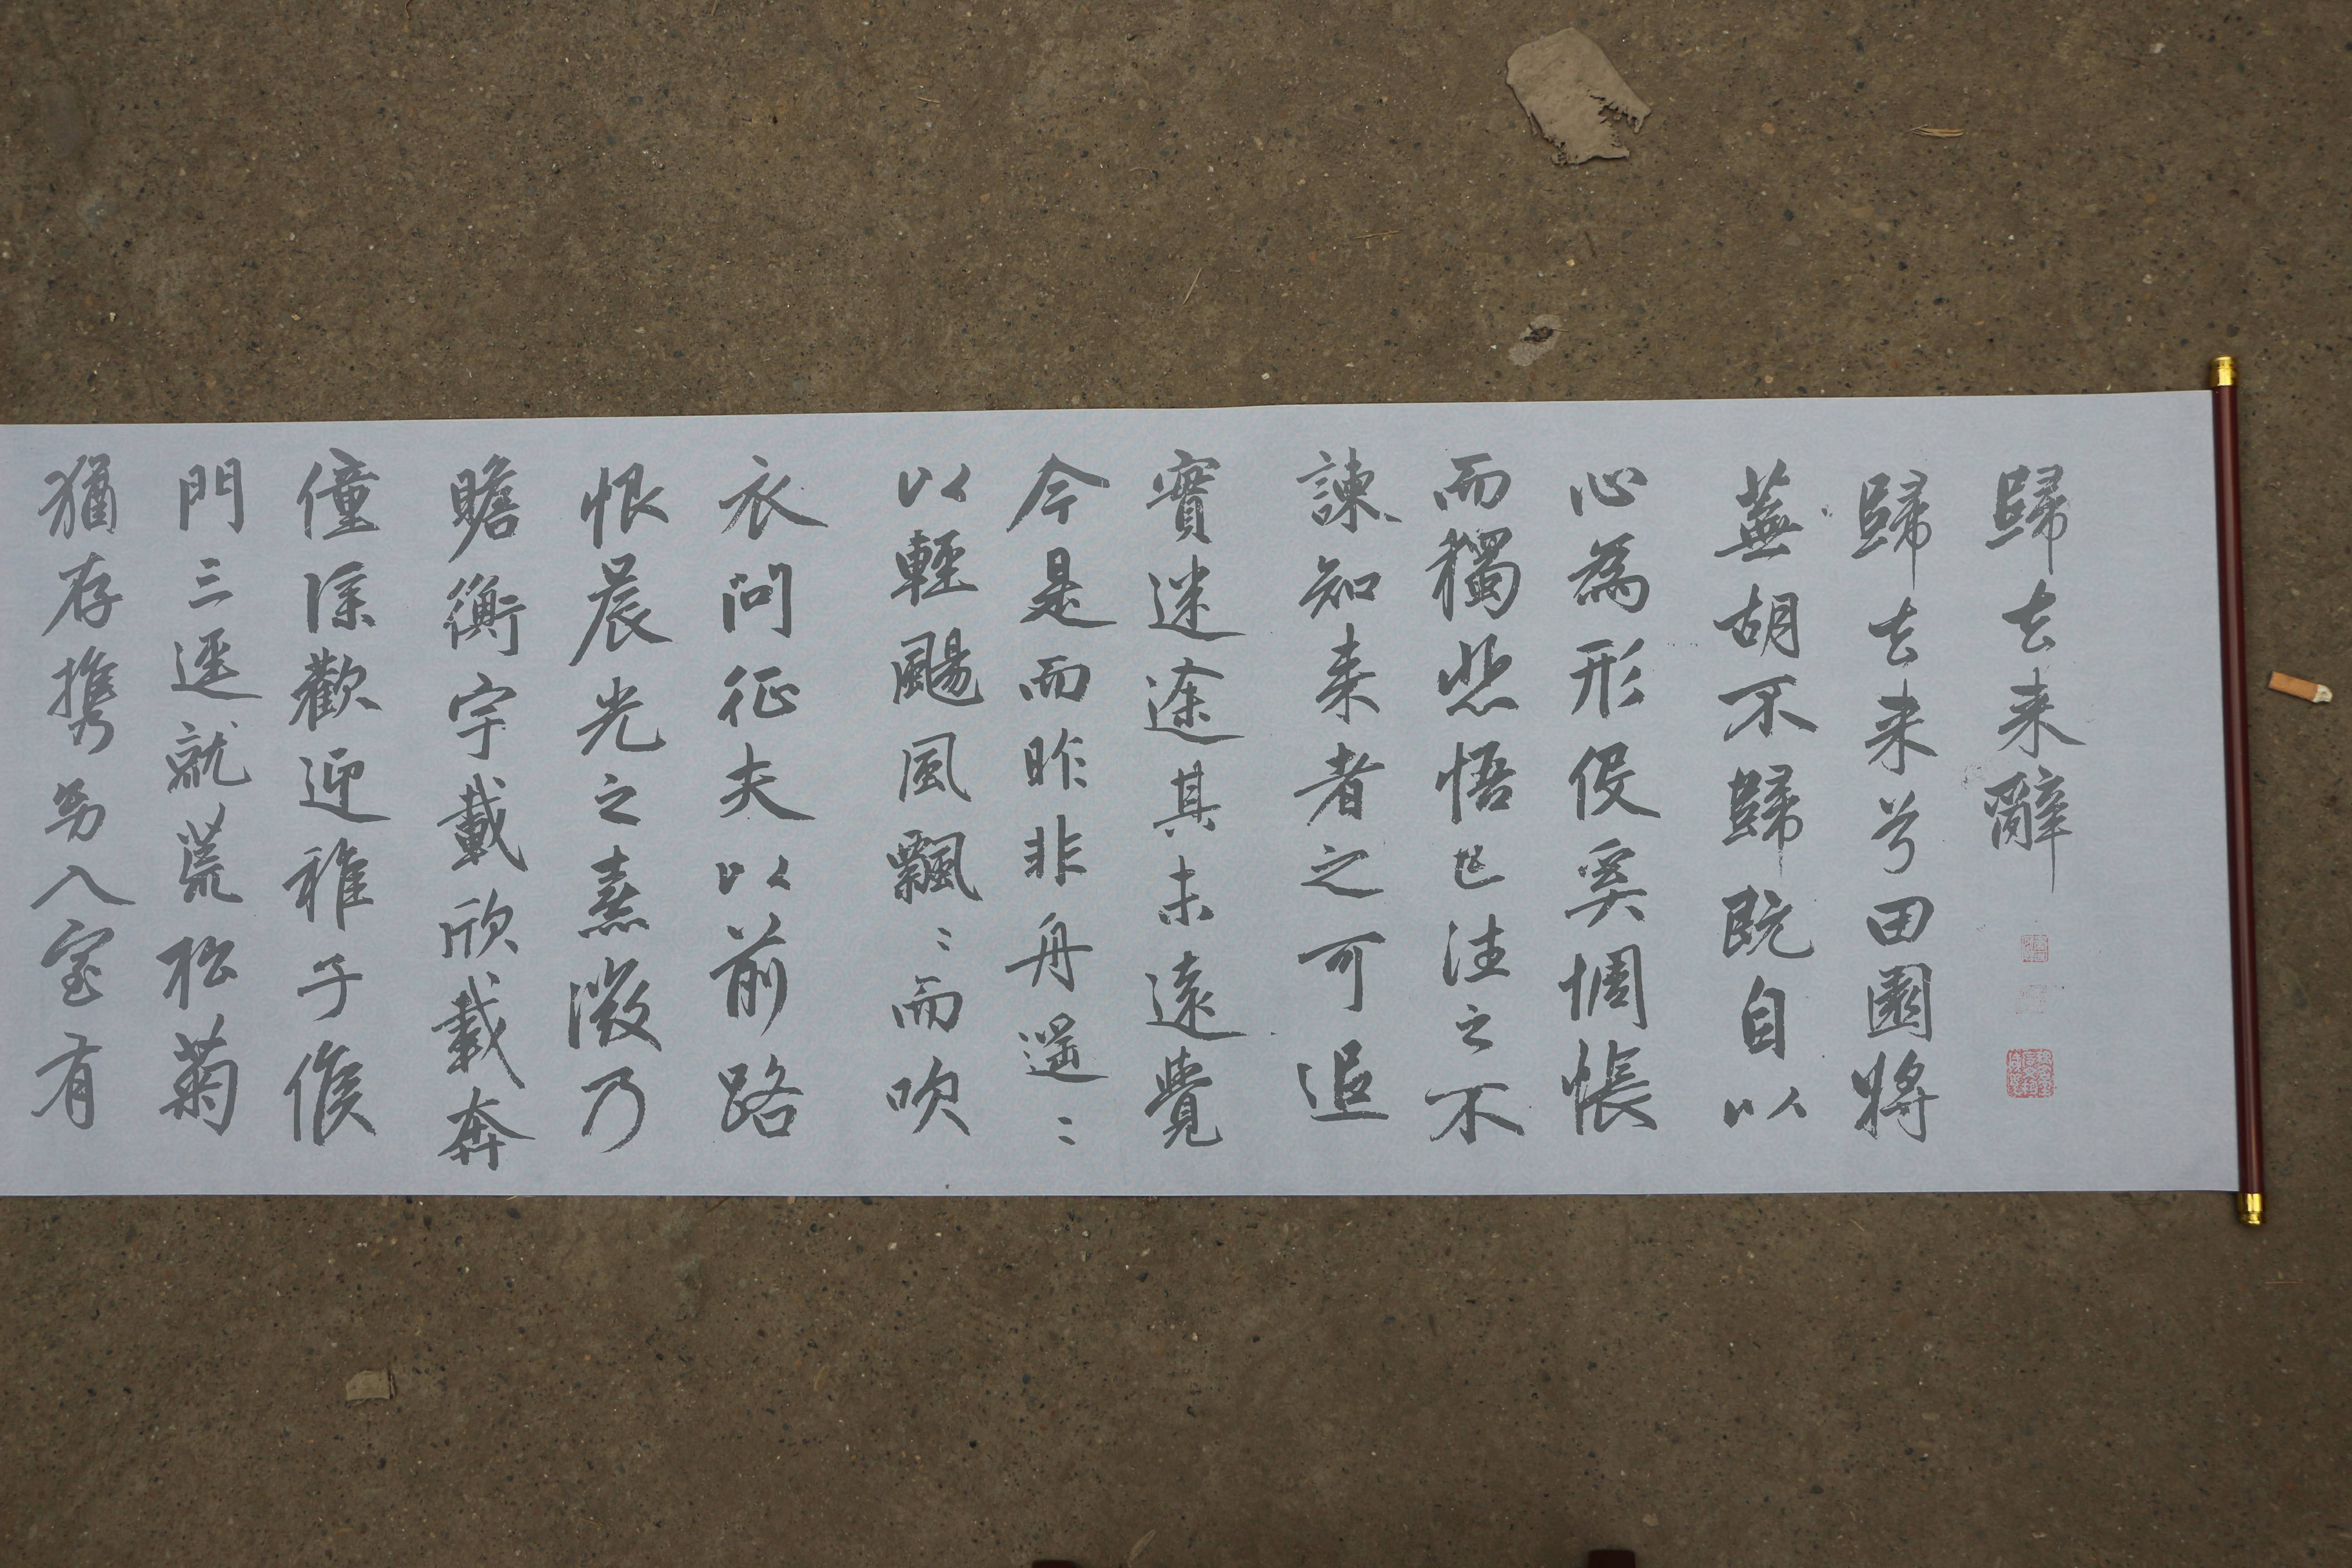 歸去来辭
歸去来兮田園將
蕪胡不歸既自以
心為形役奚惆悵
而獨悲悟已往之不
諫知来者之可追
實迷途其未遠覺
今是而昨非舟遥〻
以輕颺風飄〻而吹
衣問征夫以前路
恨晨光之熹微乃
瞻衡宇載欣載奔
僮僕歡迎稚子候
門三逕就荒松菊
猶存攜幼入室有